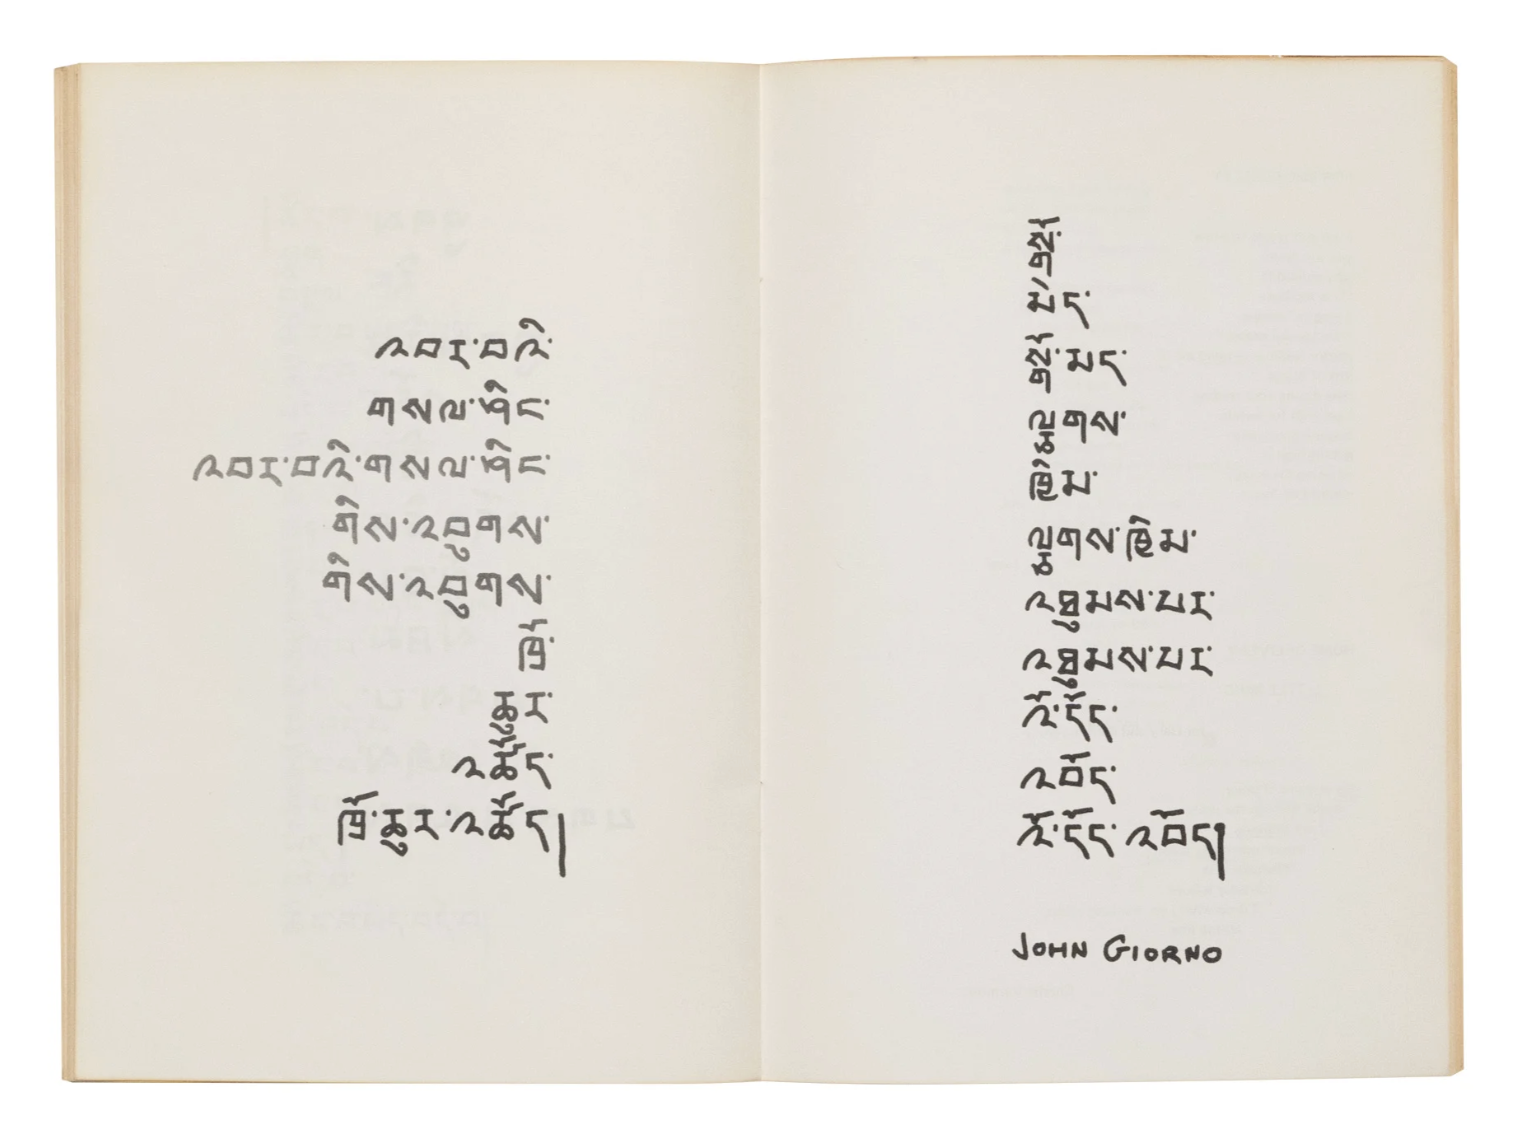 འབར་བའི་
གསལ་ཤིང་
འབར་བའི་གསལ་ཤིང་
གིས་འབུགས་
གིས་འབུགས་
ཁྲོ་
ཆུར་
འཚོད་
ཁྲོ་ཆུར་འཚོད།
སྒོ་
མེད་
སྒོ་མད་
ལྕགས་
ཁྱིམ་
ལྕགས་ཁྱིམ་
འཐུམས་པར་
འཐུམས་པར་
འོ་དོད་
འབོད་
འོ་དོད་འབོད།
JOHN GIORNO